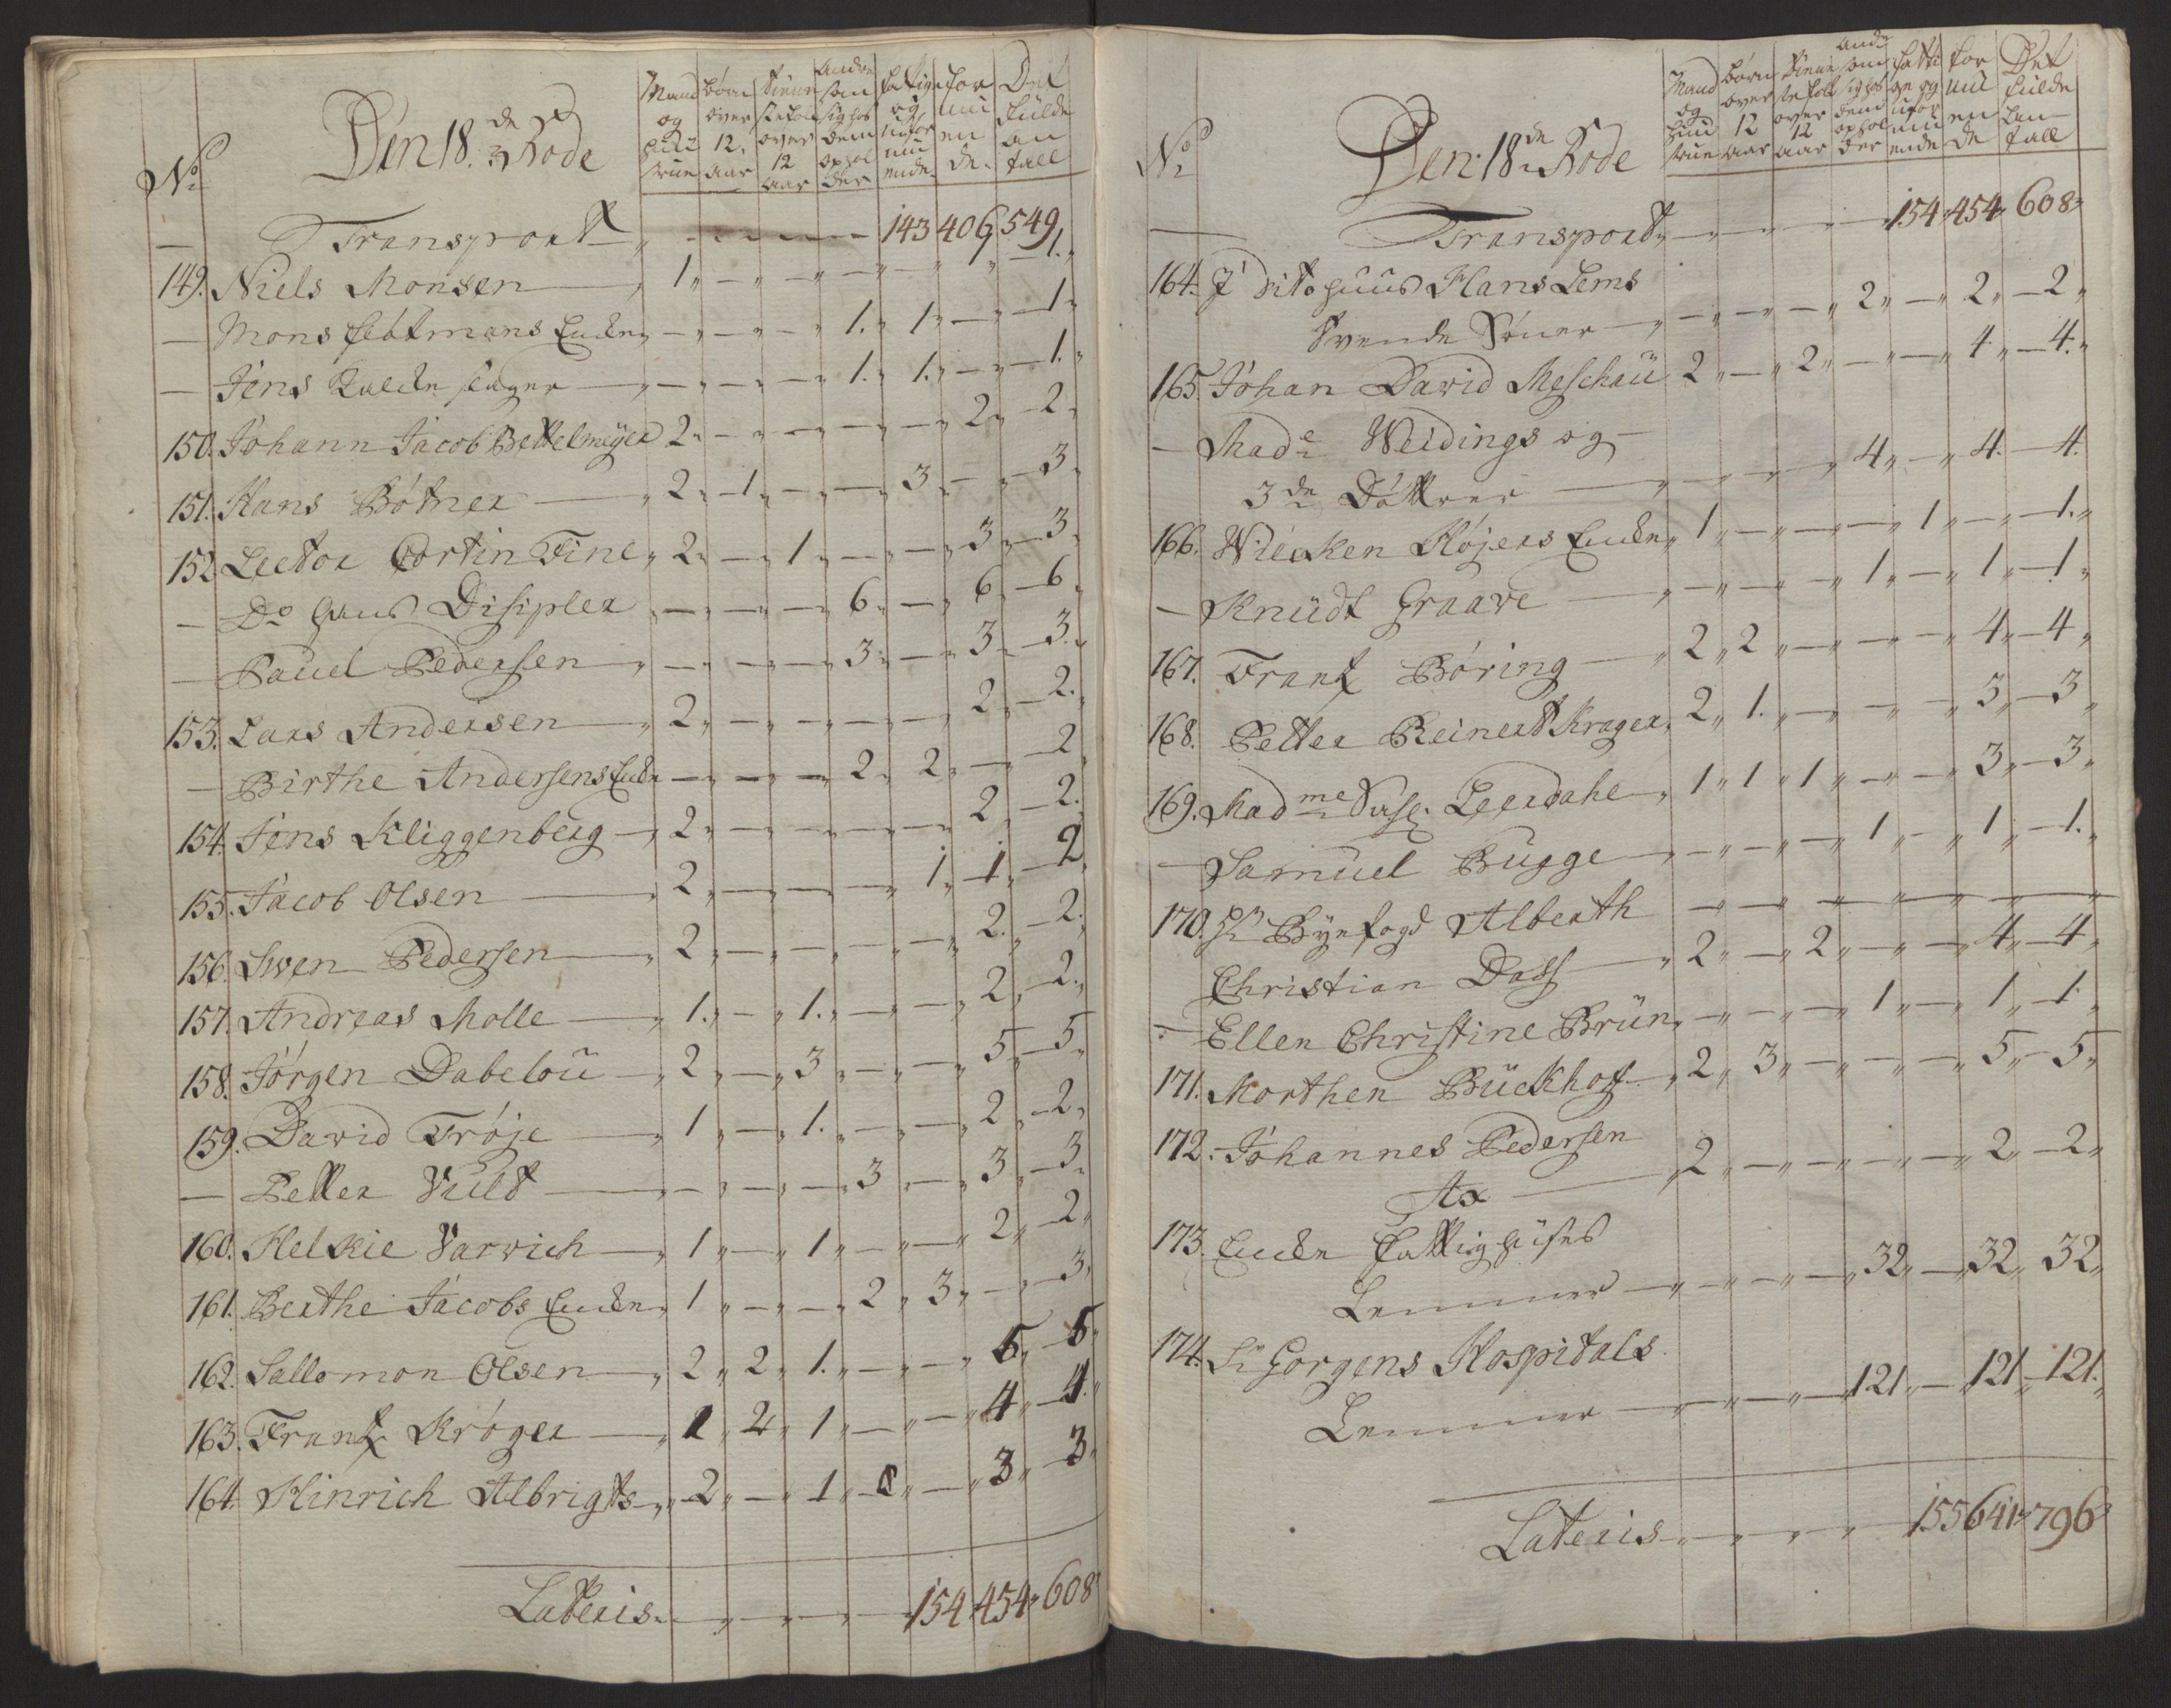 No
Den 18.de Rode
Mand og Huustrue
Børn over 12. aar
Tieneste folk over 12 aar
Andre som sig hos dem opholder
Fattige og uformuende
formuende
Det fulde antall
Transport 143 406 549
149. Niels Monsen 1 — — — — 1
— Mons Feltmans Encke — — — 1. 1 — 1
— Jens — — — 1. 1. — 1.
150. Johann Jacob Bettelmeyer 2 — — — — 2 2
151. Hans Bøtner 2 1 — — 3 — 3
152. Lector Cortin Fine 2 — 1 — — 3 3
— Do Huus Disipler — — — 6 — 6 6
— Pauel Pedersen — — — 3 — 3 3.
153. Lars Andersen 2 — — — — 2 2.
— Birthe Andersens Encke — — — 2 2 — 2
154. Jens Kliggenberg 2 — — — — 2 2.
155. Jacob Olsen 2 — — — 1 1 2
156. Swen Pedersen 2 — — — — 2. 2.
157. Andreas Molle 1. — 1. — — 2 2.
158. Jørgen Dabelou 2 — 3 — — 5 5
159. David Trøje 1 — 1. — — 2 2
— Petter Vült — — — 3 — 3 3
160. Helkie Varvich 1 — 1 — — 2 2
161. Berthe Jacobs Encke 1 — — 2 3 — 3
162. Sallomon Olsen 2 2 1. — — 5 5
163. Frantz Krøger 1 2 1 — — 4 4.
164. Hinrich Albrigts 2 — 1 — — 3 3
Lateris 154 454 608
No
Den 18de Rode
Mand og Huustrue
Børn over 12 aar
Tieneste folk over 12 aar
Andre som sig hos dem opholder
Fattige og uformuende
formuende
Det fulde Antall
Transport 154 454 608
164. I dito Huus Hans Lems
Svende Søner — — — 2 — 2 2
165. Johan David Meschau 2 — 2 — — 4 4.
— Made Weidings og
3de Døttrer — — — 4 — 4. 4.
166. Wiencken Røjers Encke 1 — — — 1 — 1.
— Knudt Graave — — — 1 — 1 1
167. Frantz Børing 2 2 — — — 4 4
168. Petter Reinert Krager 2 1. — — — 3 3
169. Madme Leerdahl 1 1 1 — — 3 3
— Samuel Bugge — — — 1 — 1 1.
170. Hr Byefogd Alberth
Christian Dass 2 — 2 — — 4 4
— Ellen Christine Brün — — — 1 — 1 1
171. Morthen Bückhoff 2 3 — — — 5 5
172. Johannes Pedersen
Ax 2 — — — — 2 2
173. Encke Fattighuses
Lemmer — — — 32 — 32 32
174. St Gorgens Hospitals
Lemmer — — — 121 — 121 121.
Lateris 155 641 796